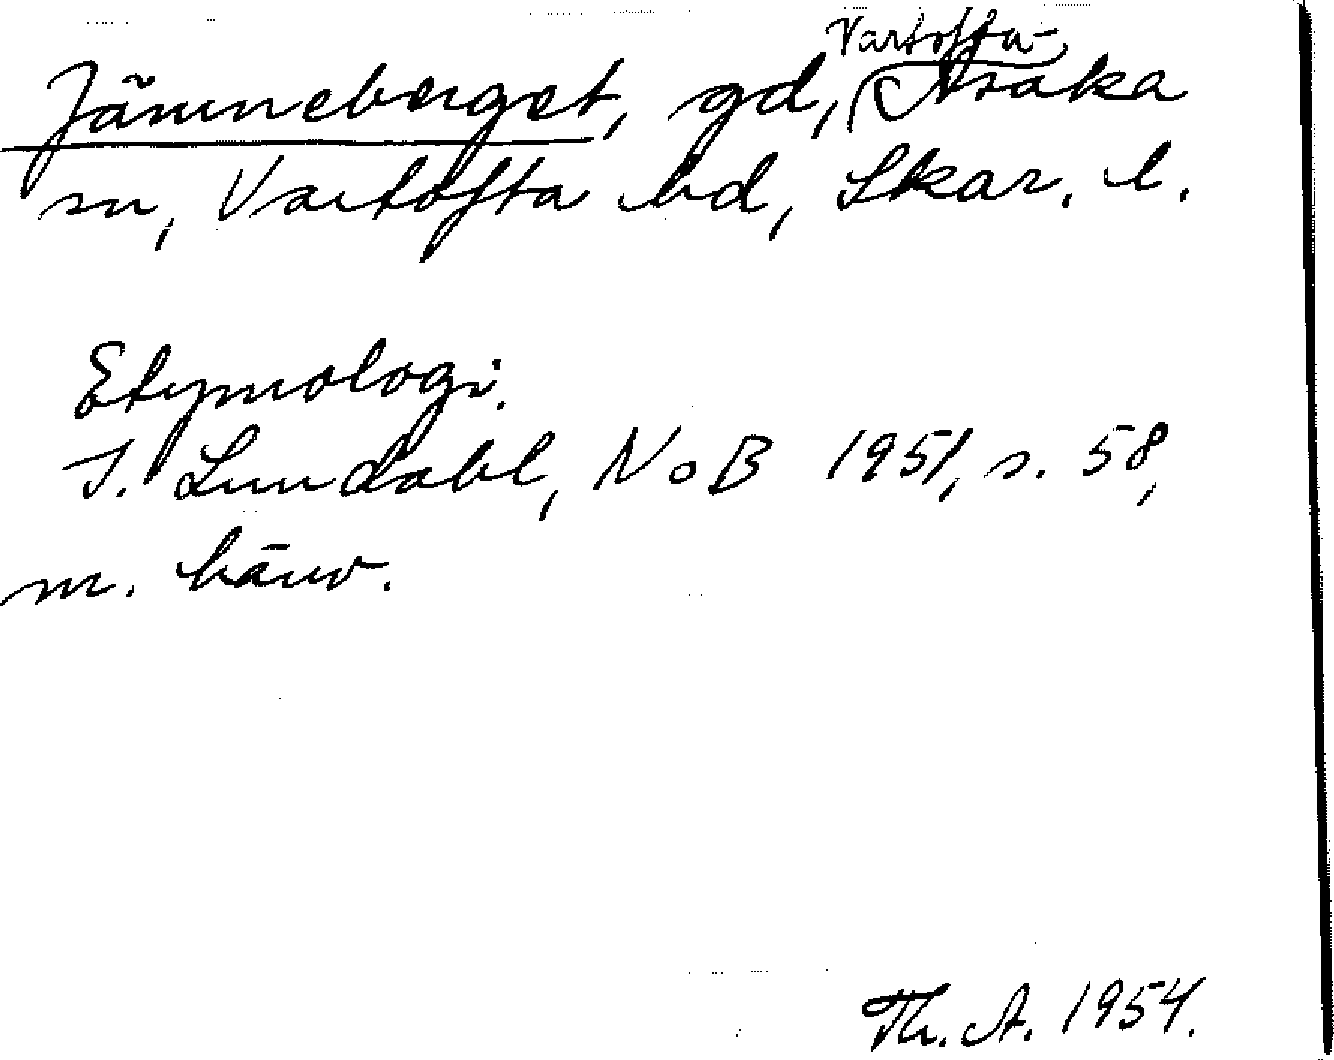 Vartofta-
Jämneberget, gd, Asaka
sn, Vartofta hd, Skar. l.
Etymologi.
I. Lundahl, NoB 1951, s. 58,
m. hänv.
Th. A. 1954.